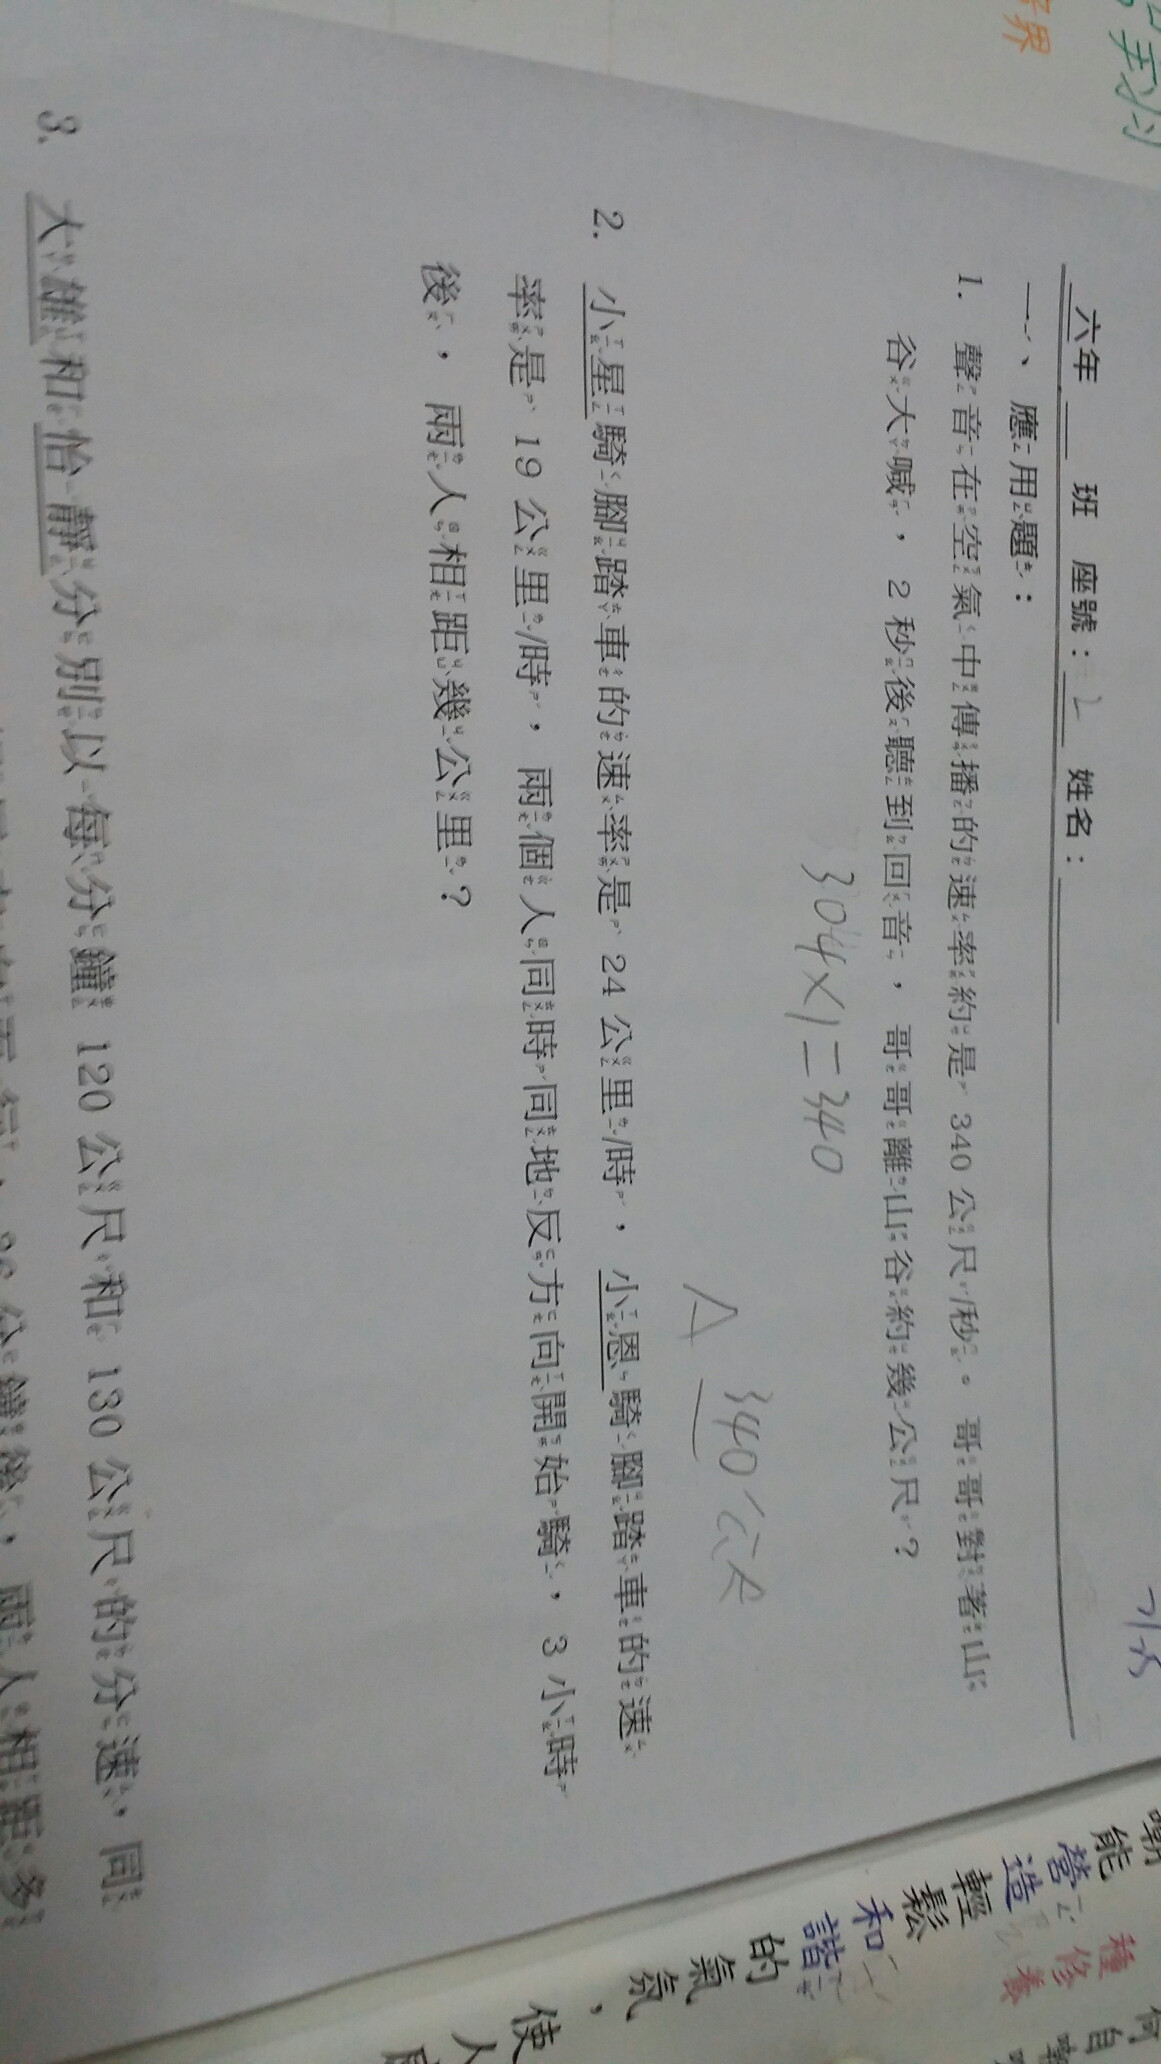 六年 班 座號：2 姓名：
一、應用題：
1. 聲音在空氣中傳播的速率約是 340 公尺/秒。哥哥對著山
谷大喊，2 秒後聽到回音，哥哥離山谷約幾公尺？
304×1=340
A 340公尺
2. 小星騎腳踏車的速率是 24 公里/時，小恩騎腳踏車的速
率是 19 公里/時，兩個人同時同地反方向開始騎，3 小時
後，兩人相距幾公里？
3. 大雄和怡靜分別以每分鐘 120 公尺和 130 公尺的分速，同
公鐘後，兩人相距多
能營造
輕鬆
和諧
的氣氛，
使人
種修養
何自
界